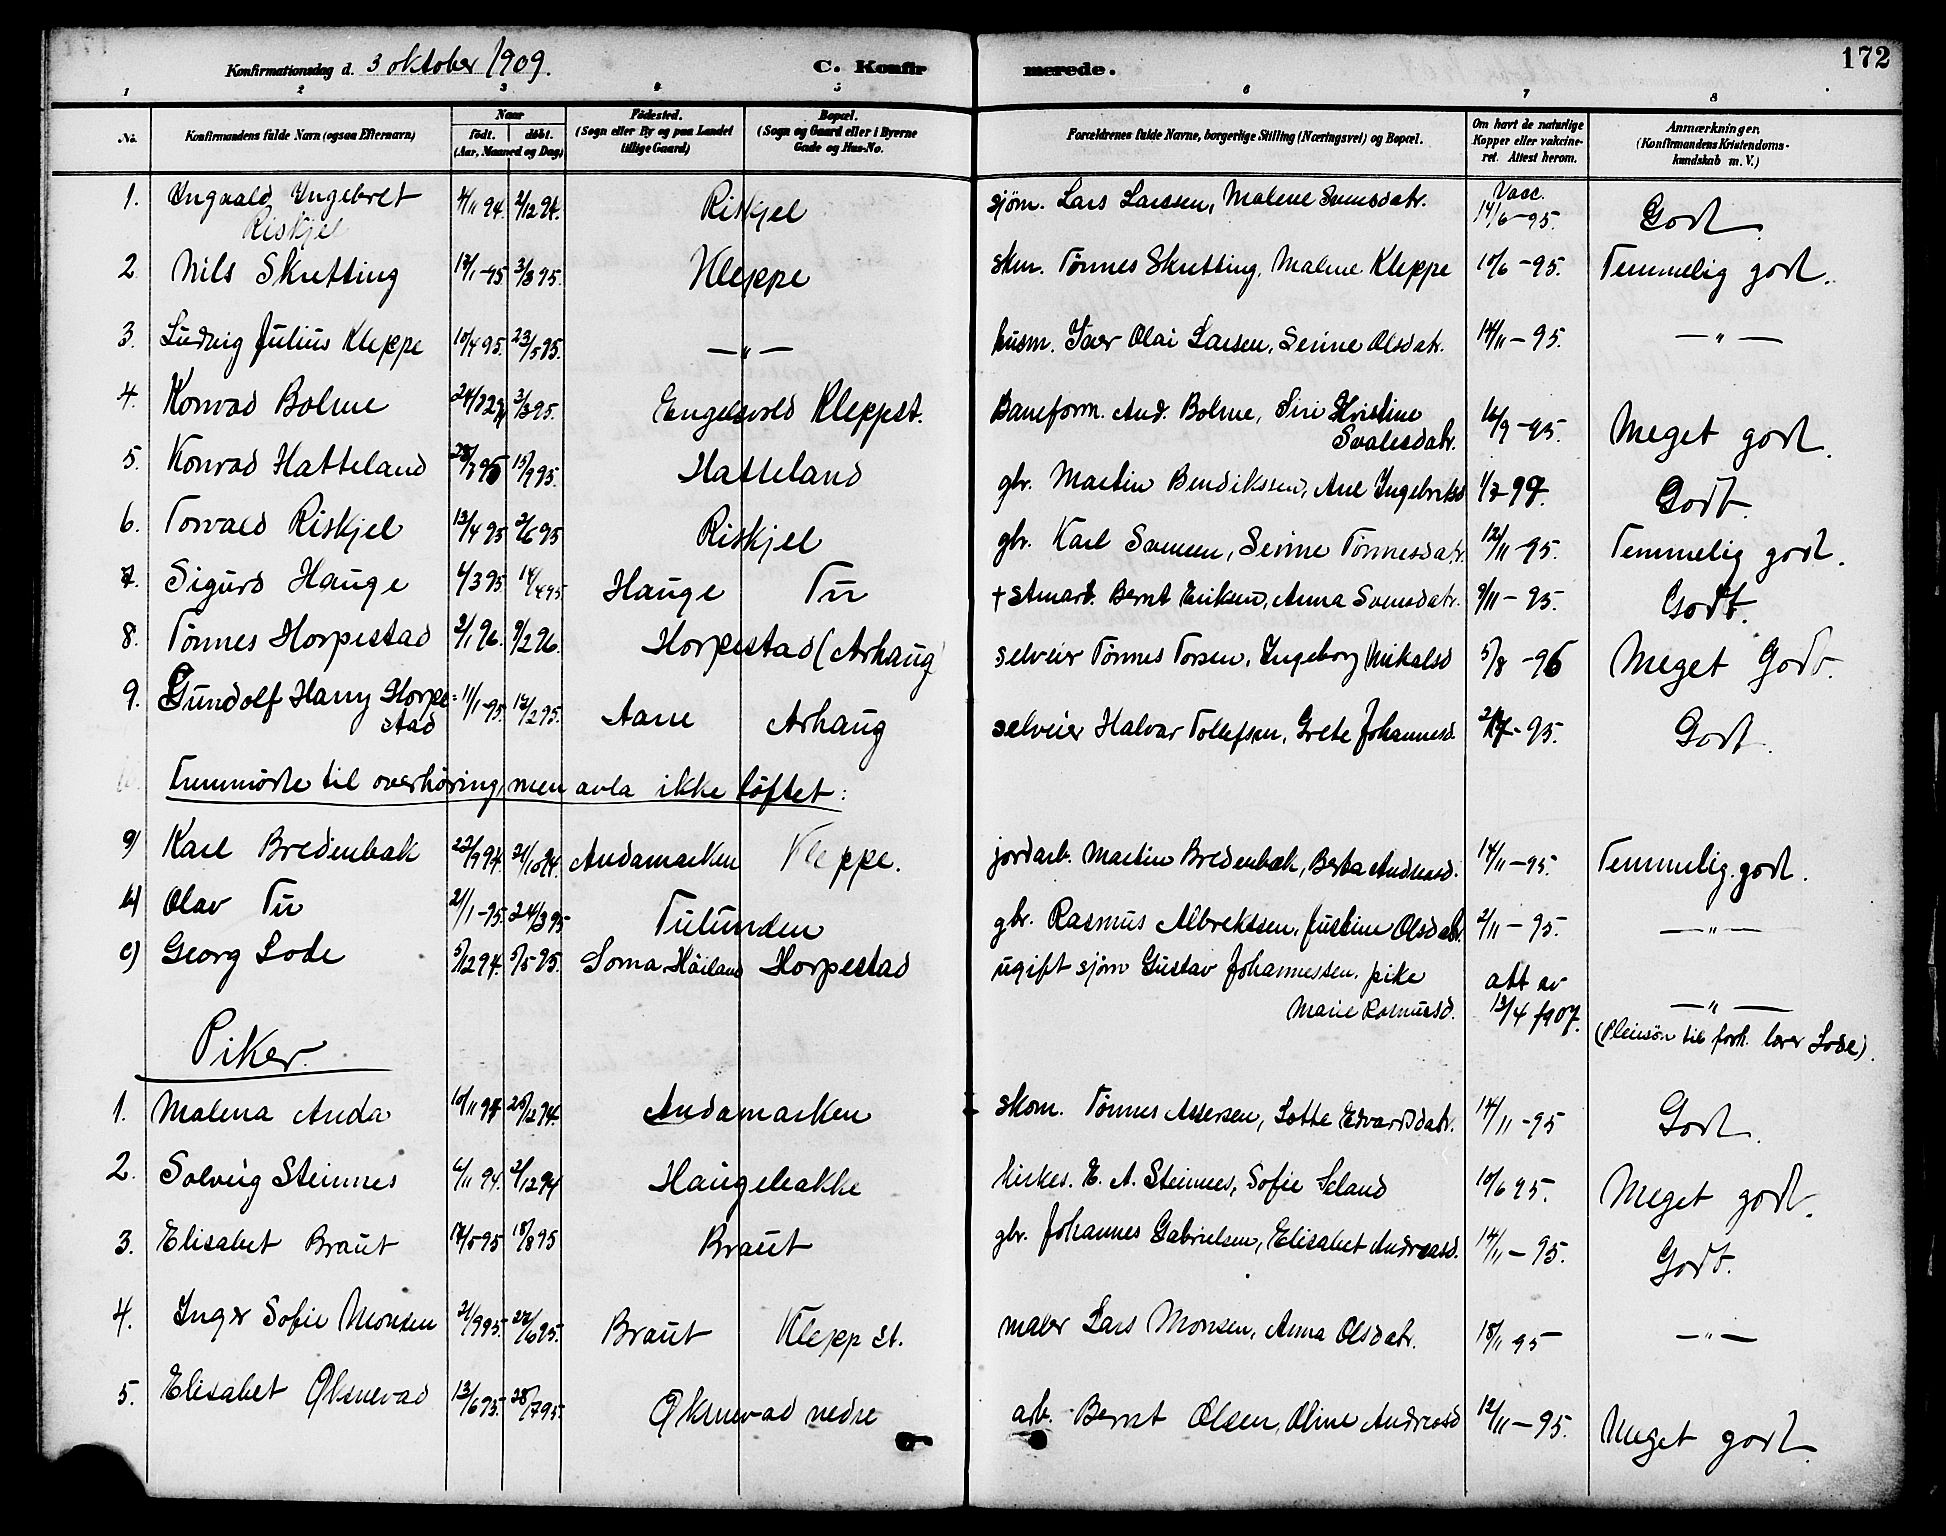 Konfirmationsdag d. 3 oktober 1909. C. Konfirmerede. 172
1 2 3 4 5 6 7 8
No. Konfirmandens fulde Navn (ogsaa Efternavn) Naar født. døbt. (Aar, Maaned og Dag) Fødested. (Sogn eller By og paa Landet tillige Gaard) Bopæl. (Sogn og Gaard eller i Byerne Gade og Hus-No. Forældrenes fulde Navne, borgerlige Stilling (Næringsvei) og Bopæl. Om havt de naturlige Kopper eller vakcineret. Attest herom. Anmærkninger. (Konfirmandens Kristendomskundskab m. V.)
1. Ingvald Ingebret Riskjel 4/11 94. 2/12 94. Riskjel sjøm. Lars Larssen, Malene Svensdatr. Vacc. 14/6-95. Godt.
2. Nils Skretting 12/1-95 3/3 95. Kleppe skm. Tønnes Skretting, Malene Kleppe 10/6-95. Temmelig godt.
3. Ludvig Julius Kleppe 10/4 95. 23/5 95. —"— husm. Iver Olai Larsen, Serine Olsdatr. 14/11-95. —"—
4. Konrad Bolme 3/3 95. Engelsvold Kleppst. Baneform. And. Bolme, Siri Kristine Svalesdatr. 16/9-95. Meget godt.
5. Konrad Hatteland 28/7 95 15/9 95. Hatteland gbr. Martin Bendikssen, Ane Ingebriktsd 1/7 97. Godt.
6. Torvald Riskjel 13/4 95 2/6 95 Riskjel gbr. Karl Svensen, Serine Tønnesdatr. 12/11-95. Temmelig godt.
7. Sigurd Hauge 4/3 95 14/4 95 Hauge Tu + Stuard. Bernt Eriksen, Anna Svensdatr. 9/11-95. Godt.
8. Tønnes Horpestad 2/1 96. 9/2 96. Horpestad (Arhaug) selveier Tønnes Torsen, Ingeborg Mikalsd 5/8-96 Meget Godt.
9. Gundolf Harry Horpestad 11/1-95 17/2 95. Aane Arhaug selveier Halvar Tollefsen, Grete Johannesd. Godt.
Fremmødte til overhøring, men avla ikke løftet:
a) Karl Bredenbak 22/9 94. 21/10 94. Andamarken Kleppe. jordarb. Martin Bredenbak, Berta Andreasd. 14/11-95. Temmelig godt.
b) Olav Tu 21/1-95. 24/3 95 Tulunden gbr. Rasmus Albrektsen, Justine Olsdatr. 2/11-95. —"—
c) Georg Lode 5/12 94. 5/5 95. Soma Høiland Horpestad ugift sjøm Gustav Johannessen. pike Marie Rasmusd. att av 13/4 1907. —"—
(Pleiesøn til forh. lærer Lode).
Piker.
1. Malena Anda 10/11 94 25/12 94. Andamarken skom. Tønnes Assersen, Lotte Edvardsdatr. 14/11-95 Godt.
2. Solveig Steinnes 4/11 94. 2/12 94 Haugebakke kirkes. E. A. Steinnes, Sofie Seland 10/6 95. Meget godt.
3. Elisabet Braut 17/5 95 18/8 95 Braut gbr. Johannes Gabrielsen, Elisabet Andreasd. 14/11-95. Godt.
4. Inger Sofie Monsen Braut Klepp st. maler Lars Monsen, Anna Olsdatr. 18/11 95 —"—
5. Elisabet Øksnevad 13/6 95. 28/7 95. Øksnevad nedre arb. Bernt Olsen, Oline Andreasd 12/11-95. Meget godt.